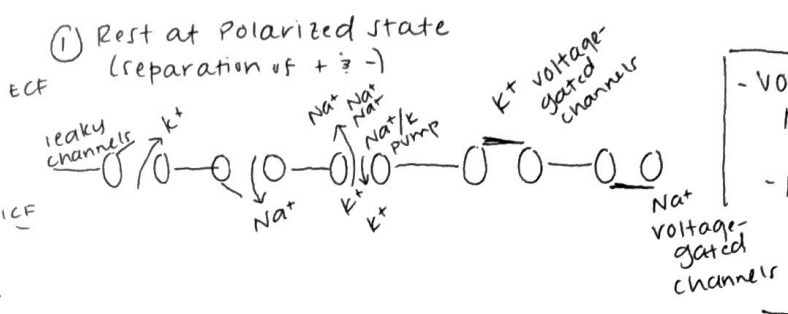 ① Rest at Polarized state
(separation of + & -)
ECF
leaky
channels
K+
Na+
Na+ Na+
Na+
Na+/K
pump
K+
K+
K+ voltage-
gated
channels
Na+
voltage-
gated
channels
ICF
- VO
-